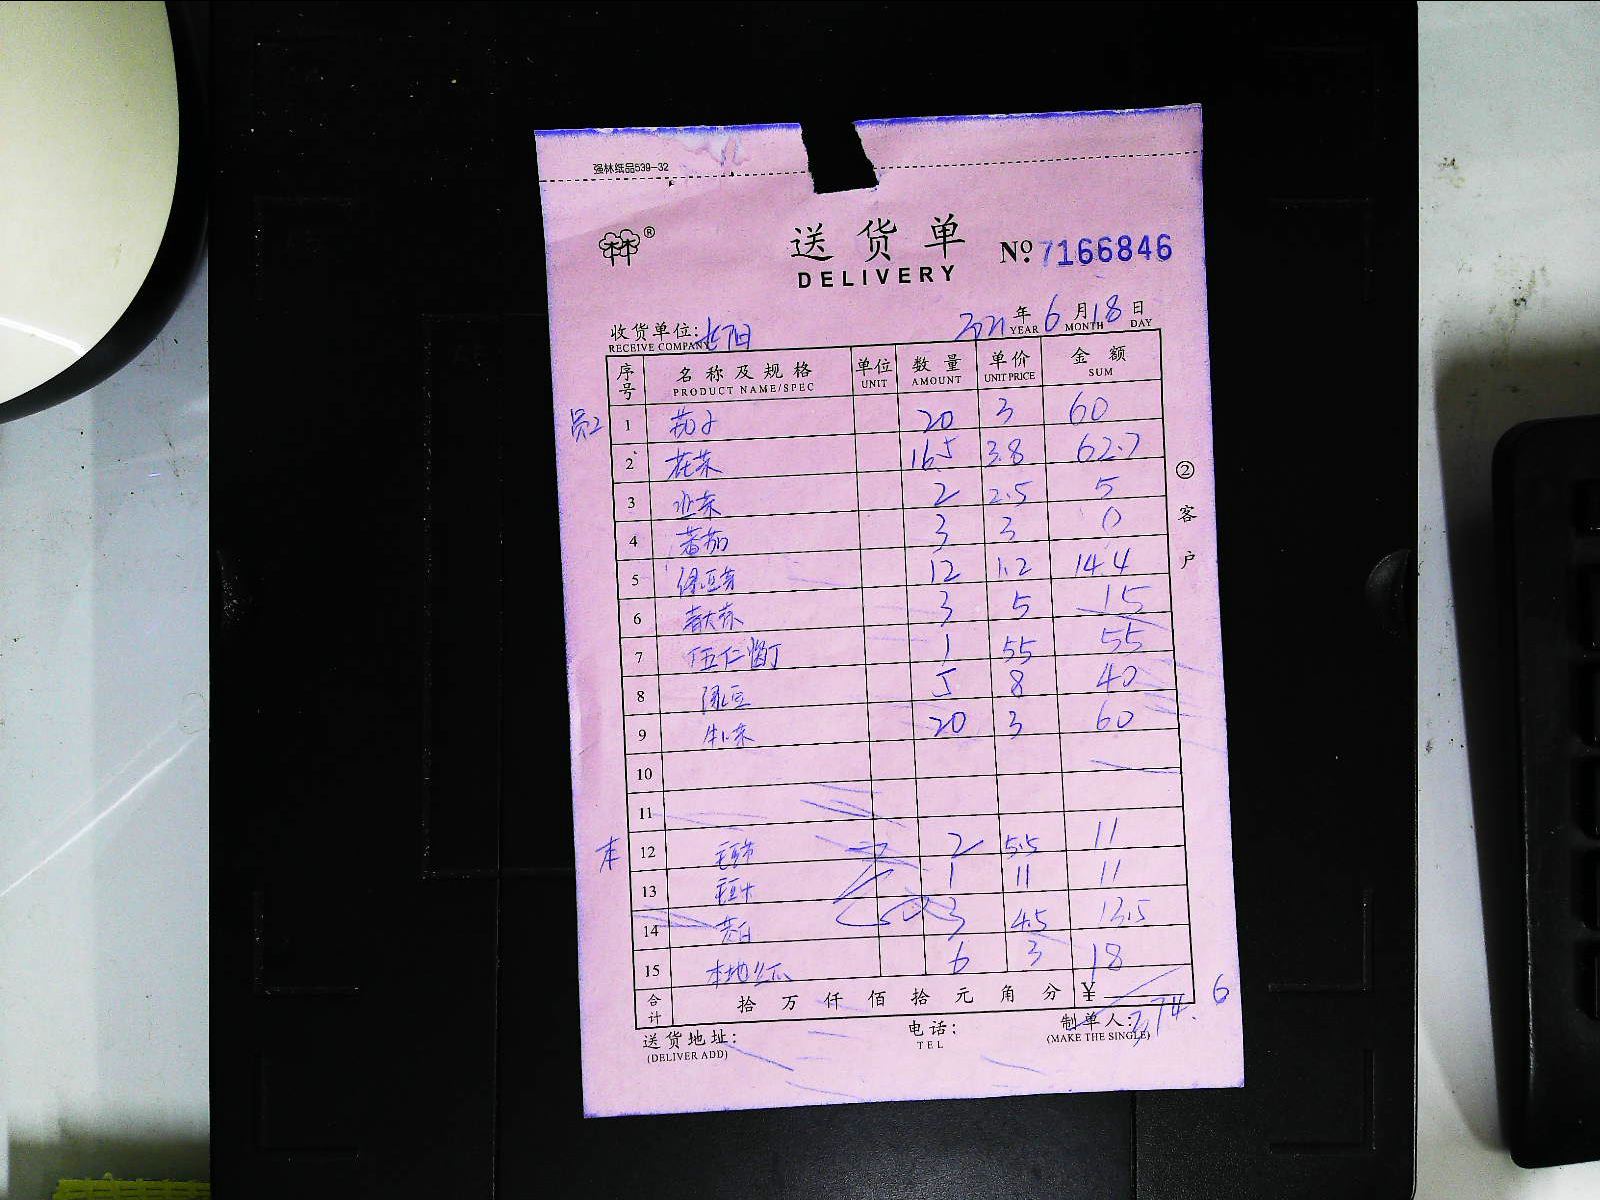 强林纸品539-32
送货单
DELIVERY
№ 7166846
收货单位: 长阳
RECEIVE COMPANY
2021 年 6 月 18 日
YEAR MONTH DAY
序号 名称及规格 单位 数量 单价 金额
PRODUCT NAME/SPEC UNIT AMOUNT UNIT PRICE SUM
员工 1 茄子 20 3 60
2 花菜 16.5 3.8 62.7
3 韭菜 2 2.5 5
4 番茄 3 3 0
5 绿豆芽 12 1.2 14.4
6 3 5 15
7 伍仁酱丁 1 55 55
8 绿豆 5 8 40
9 20 3 60
10
11
本 12 2 5.5 11
13 1 11 11
14 茭白 3 4.5 13.5
15 本地 6 3 18
合计 拾 万 仟 佰 拾 元 角 分 ¥ 374.6
送货地址: 电话: 制单人:
(DELIVER ADD) TEL (MAKE THE SINGLE)
② 客户